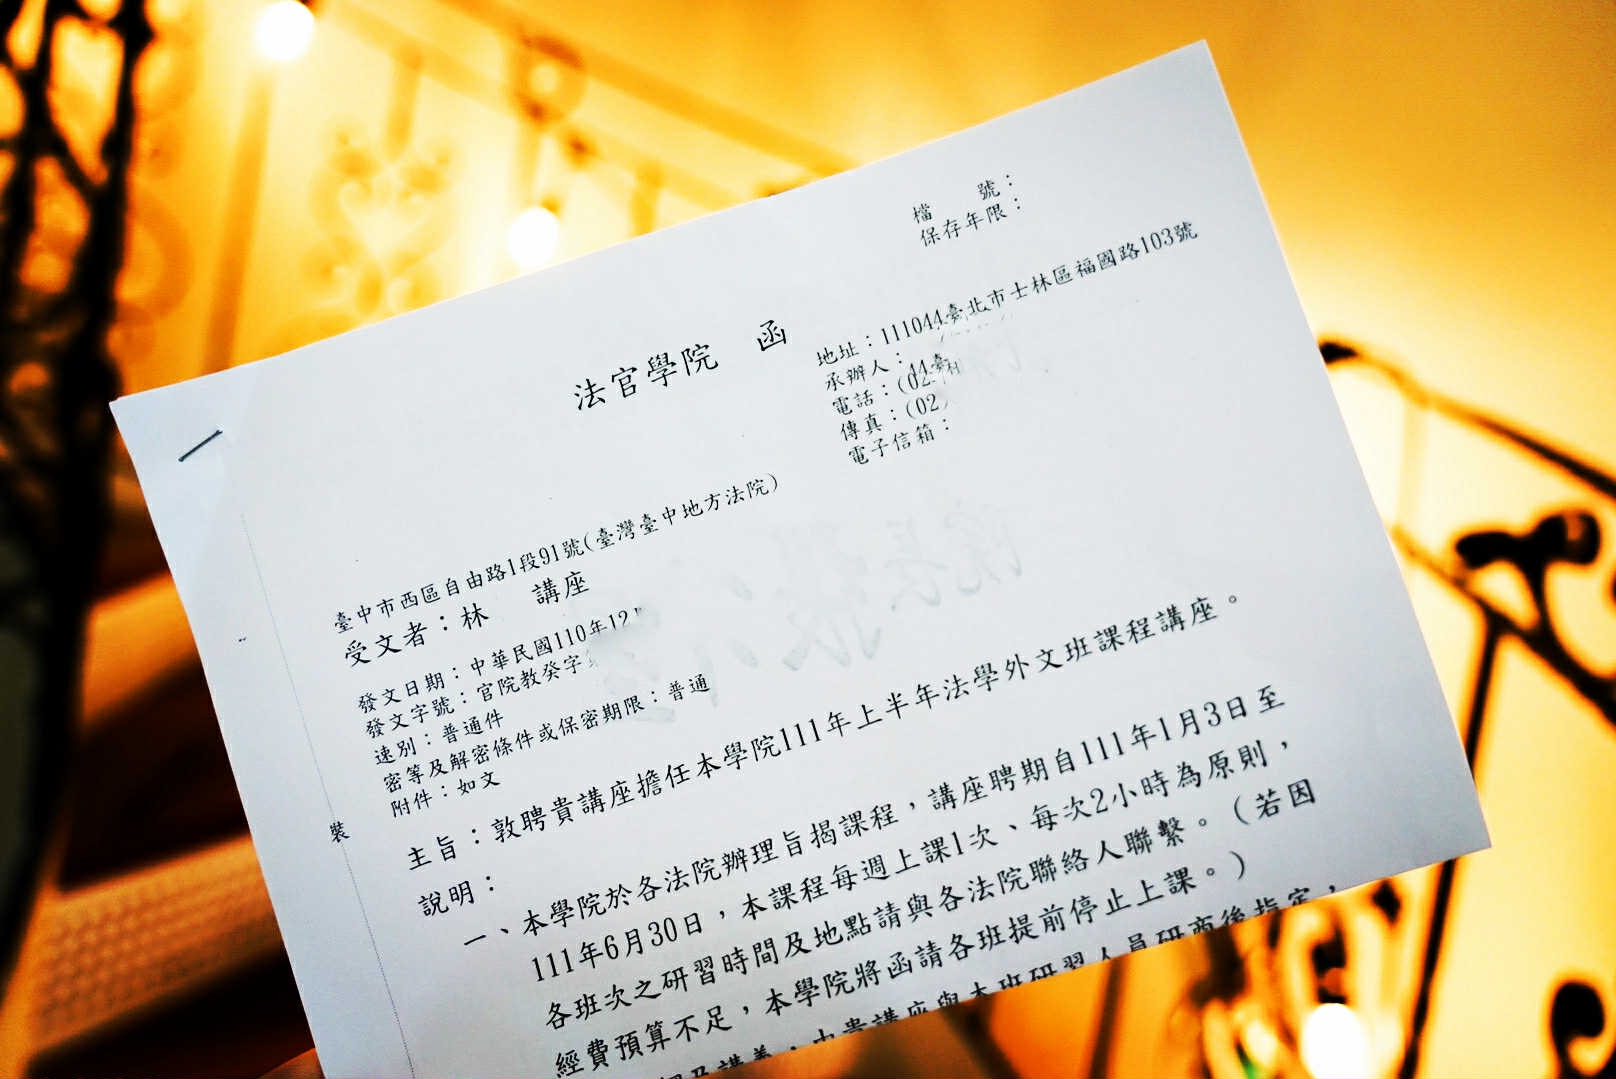 檔　　號：
保存年限：
法官學院　函
地址：111044臺北市士林區福國路103號
承辦人：
電話：(02
傳真：(02)
電子信箱：
臺中市西區自由路1段91號(臺灣臺中地方法院)
受文者：林　　講座
發文日期：中華民國110年12
發文字號：官院教癸字
速別：普通件
密等及解密條件或保密期限：普通
附件：如文
裝
主旨：敦聘貴講座擔任本學院111年上半年法學外文班課程講座。
說明：
一、本學院於各法院辦理旨揭課程，講座聘期自111年1月3日至
111年6月30日，本課程每週上課1次、每次2小時為原則，
各班次之研習時間及地點請與各法院聯絡人聯繫。（若因
經費預算不足，本學院將函請各班提前停止上課。）
講義，由貴講座與本班研習人員研商後指定，